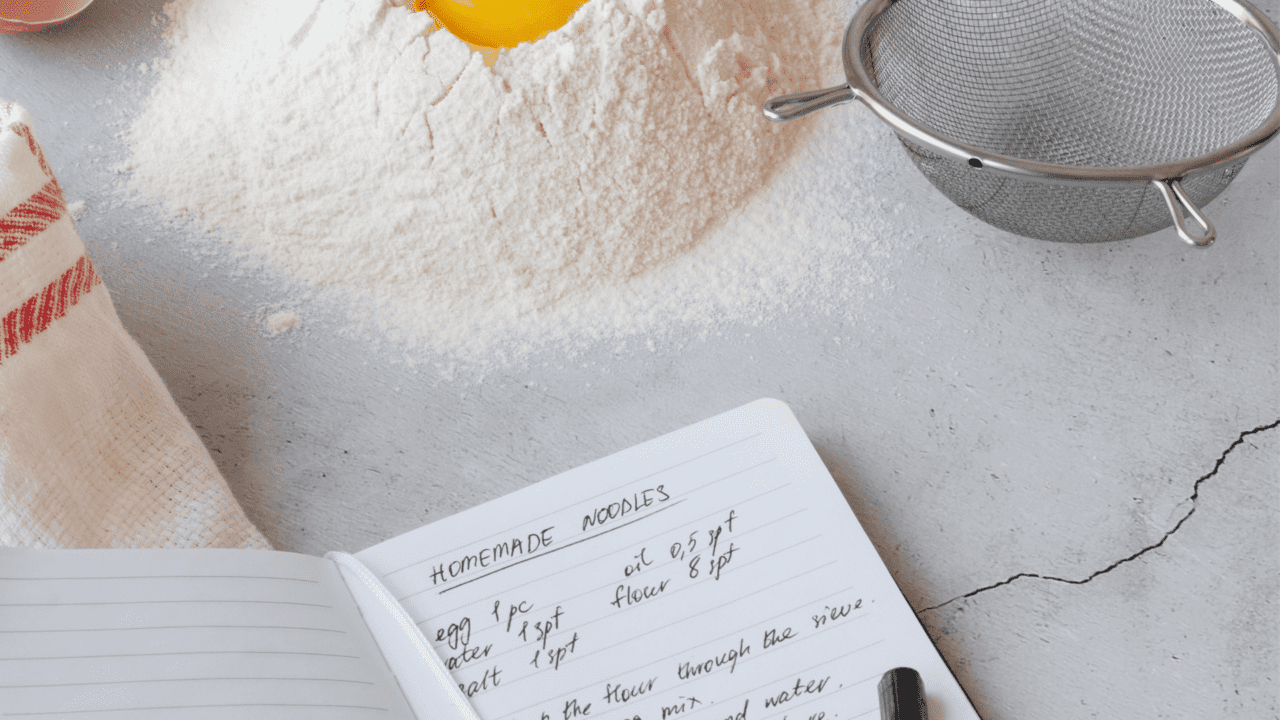 HOMEMADE NOODLES
egg 1 pc oil 0,5 spt
ater 1 spt flour 8 spt
alt 1 spt
the flour through the sieve.
mix.
nd water.